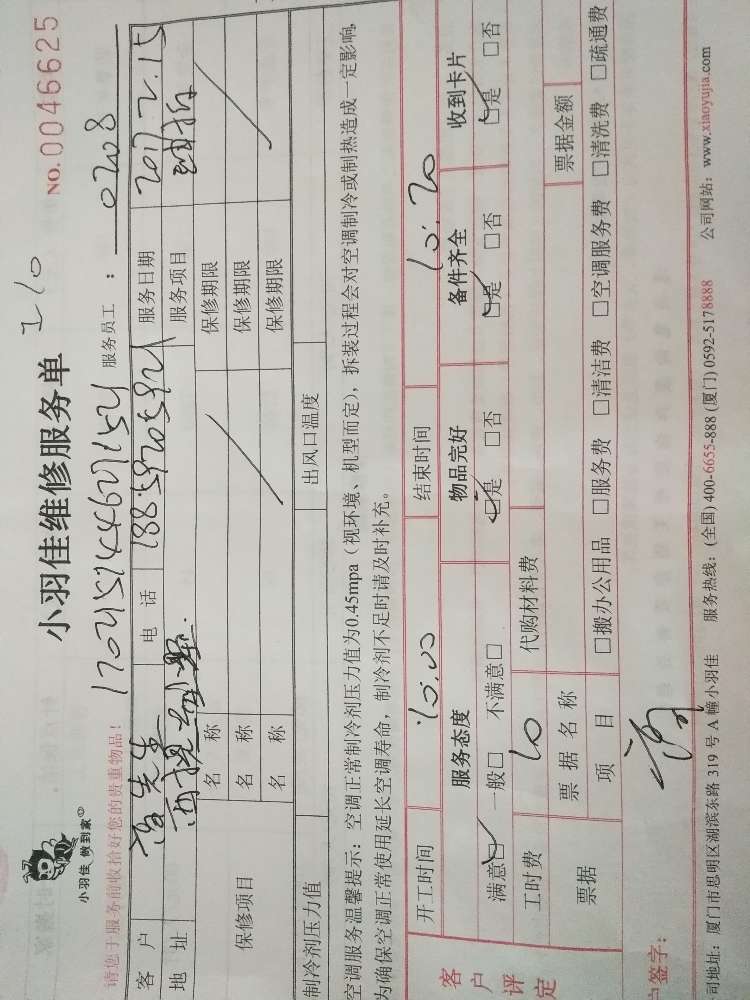 小羽佳 做到家
小羽佳维修服务单 210 NO.0046625
请您于服务前收拾好您的贵重物品！ 服务员工： 0208
客户 先生 电话 服务日期 2017.2.15
地址 服务项目
保修项目 名称 保修期限
名称 保修期限
名称 保修期限
制冷剂压力值 出风口温度
空调服务温馨提示：空调正常制冷剂压力值为0.45mpa（视环境、机型而定），拆装过程会对空调制冷或制热造成一定影响，
为确保空调正常使用延长空调寿命，制冷剂不足时请及时补充。
客户评定
开工时间 10:00 结束时间 10:20
服务态度 物品完好 备件齐全 收到卡片
满意□ 一般□ 不满意□ □是 □否 □是 □否 □是 □否
工时费 10 代购材料费
票据 票据名称 票据金额
项目 □搬办公用品 □服务费 □清洁费 □空调服务费 □清洗费 □疏通费
签字：
司地址：厦门市思明区湖滨东路 319 号 A 幢小羽佳 服务热线：(全国) 400-6655-888 (厦门) 0592-5178888 公司网站：www.xiaoyujia.com